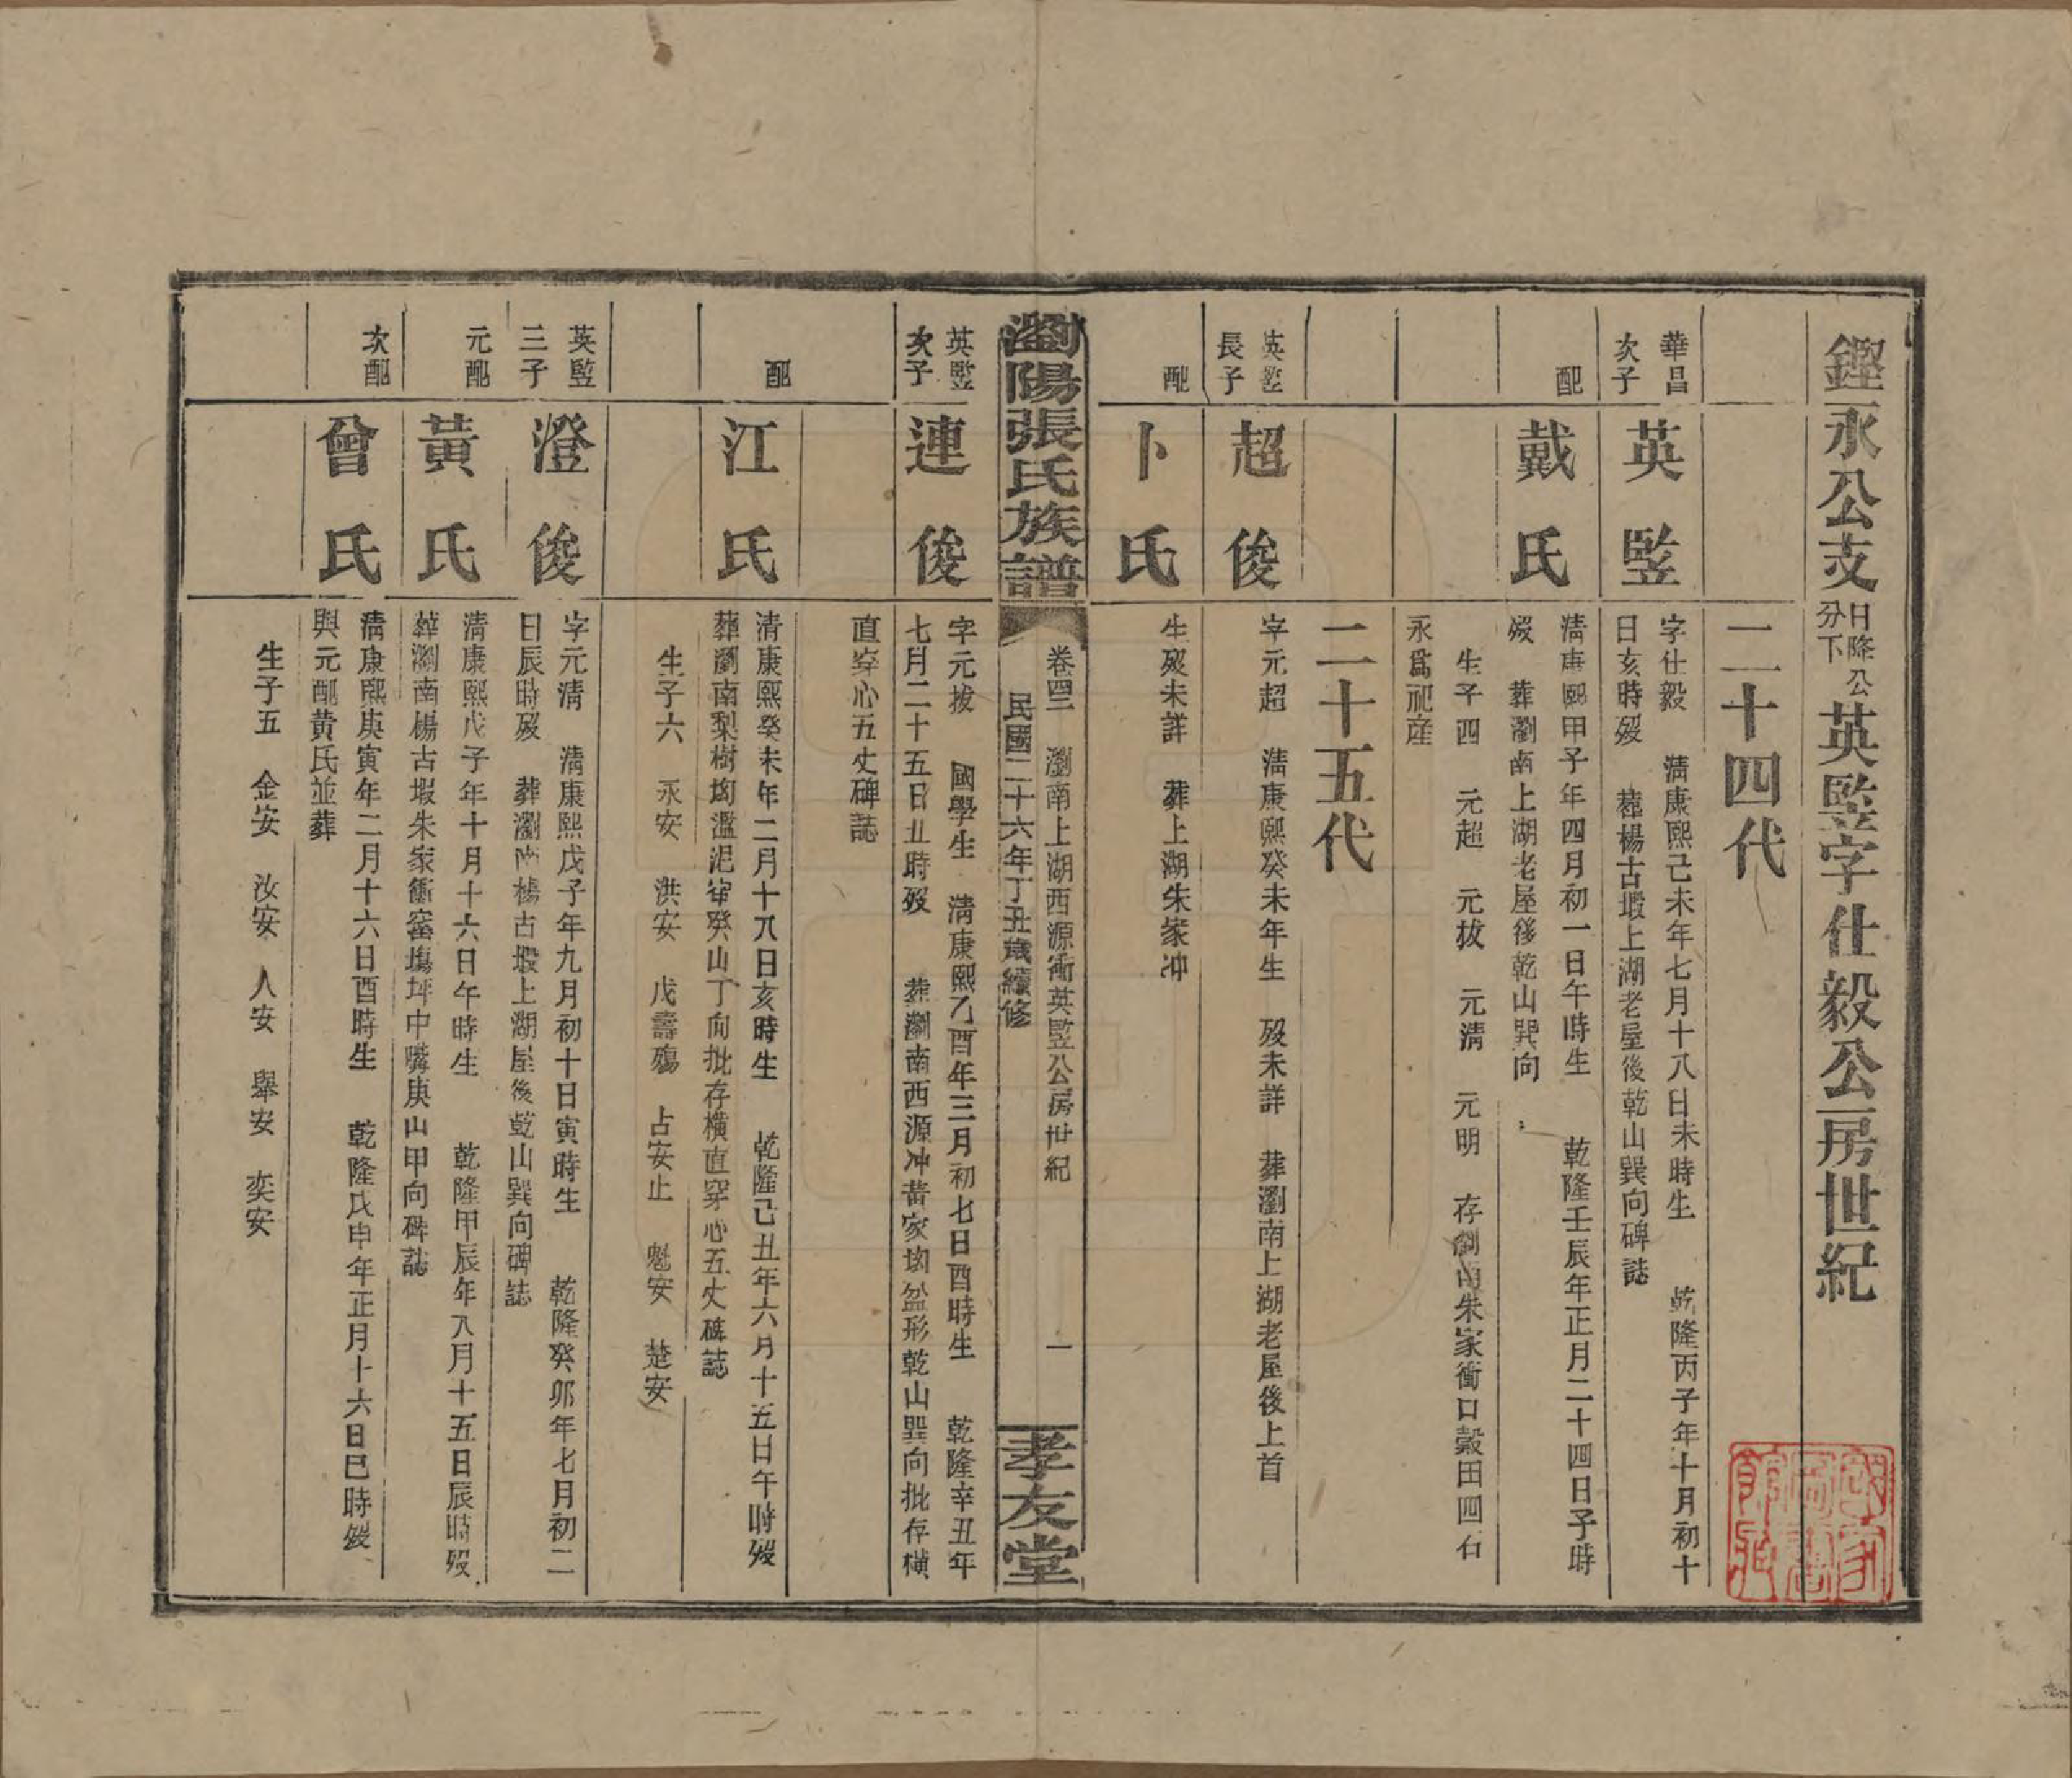 鏗永公支
日隆公
分下
英監字仕毅公房世紀
二十四代
華昌
次子
英監
字仕毅 清康熙己未年七月十八日未時生 乾隆丙子年十月初十
日亥時歿 葬楊古塅上湖老屋後乾山巽向碑誌
配
戴氏
清康熙甲子年四月初一日午時生 乾隆壬辰年正月二十四日子時
歿 葬瀏南上湖老屋後乾山巽向
生子四 元超 元拔 元清 元明 存瀏南朱家衝口穀田四石
永爲祀産
二十五代
英監
長子
超俊
字元超 清康熙癸未年生 歿未詳 葬瀏南上湖老屋後上首
配
卜氏
生歿未詳 葬上湖朱家冲
瀏陽張氏族譜
卷四二 瀏南上湖西源衝英監公房世紀 一
民國二十六年丁丑歲續修
孝友堂
英監
次子
連俊
字元拔 國學生 清康熙乙酉年三月初七日酉時生 乾隆辛丑年
七月二十五日丑時歿 葬瀏南西源冲黃家坳盆形乾山巽向批存橫
直穿心五丈碑誌
配
江氏
清康熙癸未年二月十八日亥時生 乾隆己丑年六月十五日午時歿
葬瀏南梨樹坳濫泥窂癸山丁向批存橫直穿心五丈碑誌
生子六 永安 洪安 戊壽殤 占安止 魁安 楚安
英監
三子
澄俊
字元清 清康熙戊子年九月初十日寅時生 乾隆癸卯年七月初二
日辰時歿 葬瀏南楊古塅上湖屋後乾山巽向碑誌
元配
黃氏
清康熙戊子年十月十六日午時生 乾隆甲辰年八月十五日辰時歿
葬瀏南楊古塅朱家衝窰塲坪中嘴庚山甲向碑誌
次配
曾氏
清康熙庚寅年二月十六日酉時生 乾隆戊申年正月十六日巳時歿
與元配黃氏並葬
生子五 金安 汝安 人安 舉安 奕安